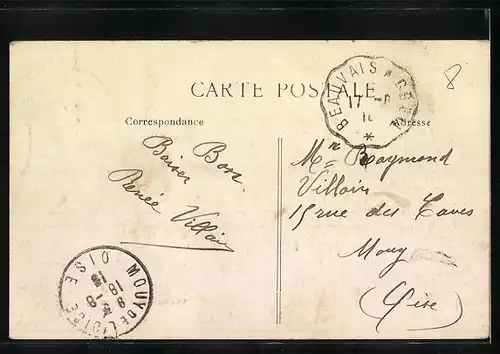 CARTE POSTALE
Correspondance
Adresse
BEAUVAIS A CREIL
17 - 8
8
Baiser Bons
Renée Villain
Mr Raymond
Villain
15 rue des Caves
Mouy
(Oise)
MOUY DE L'OISE OISE
18